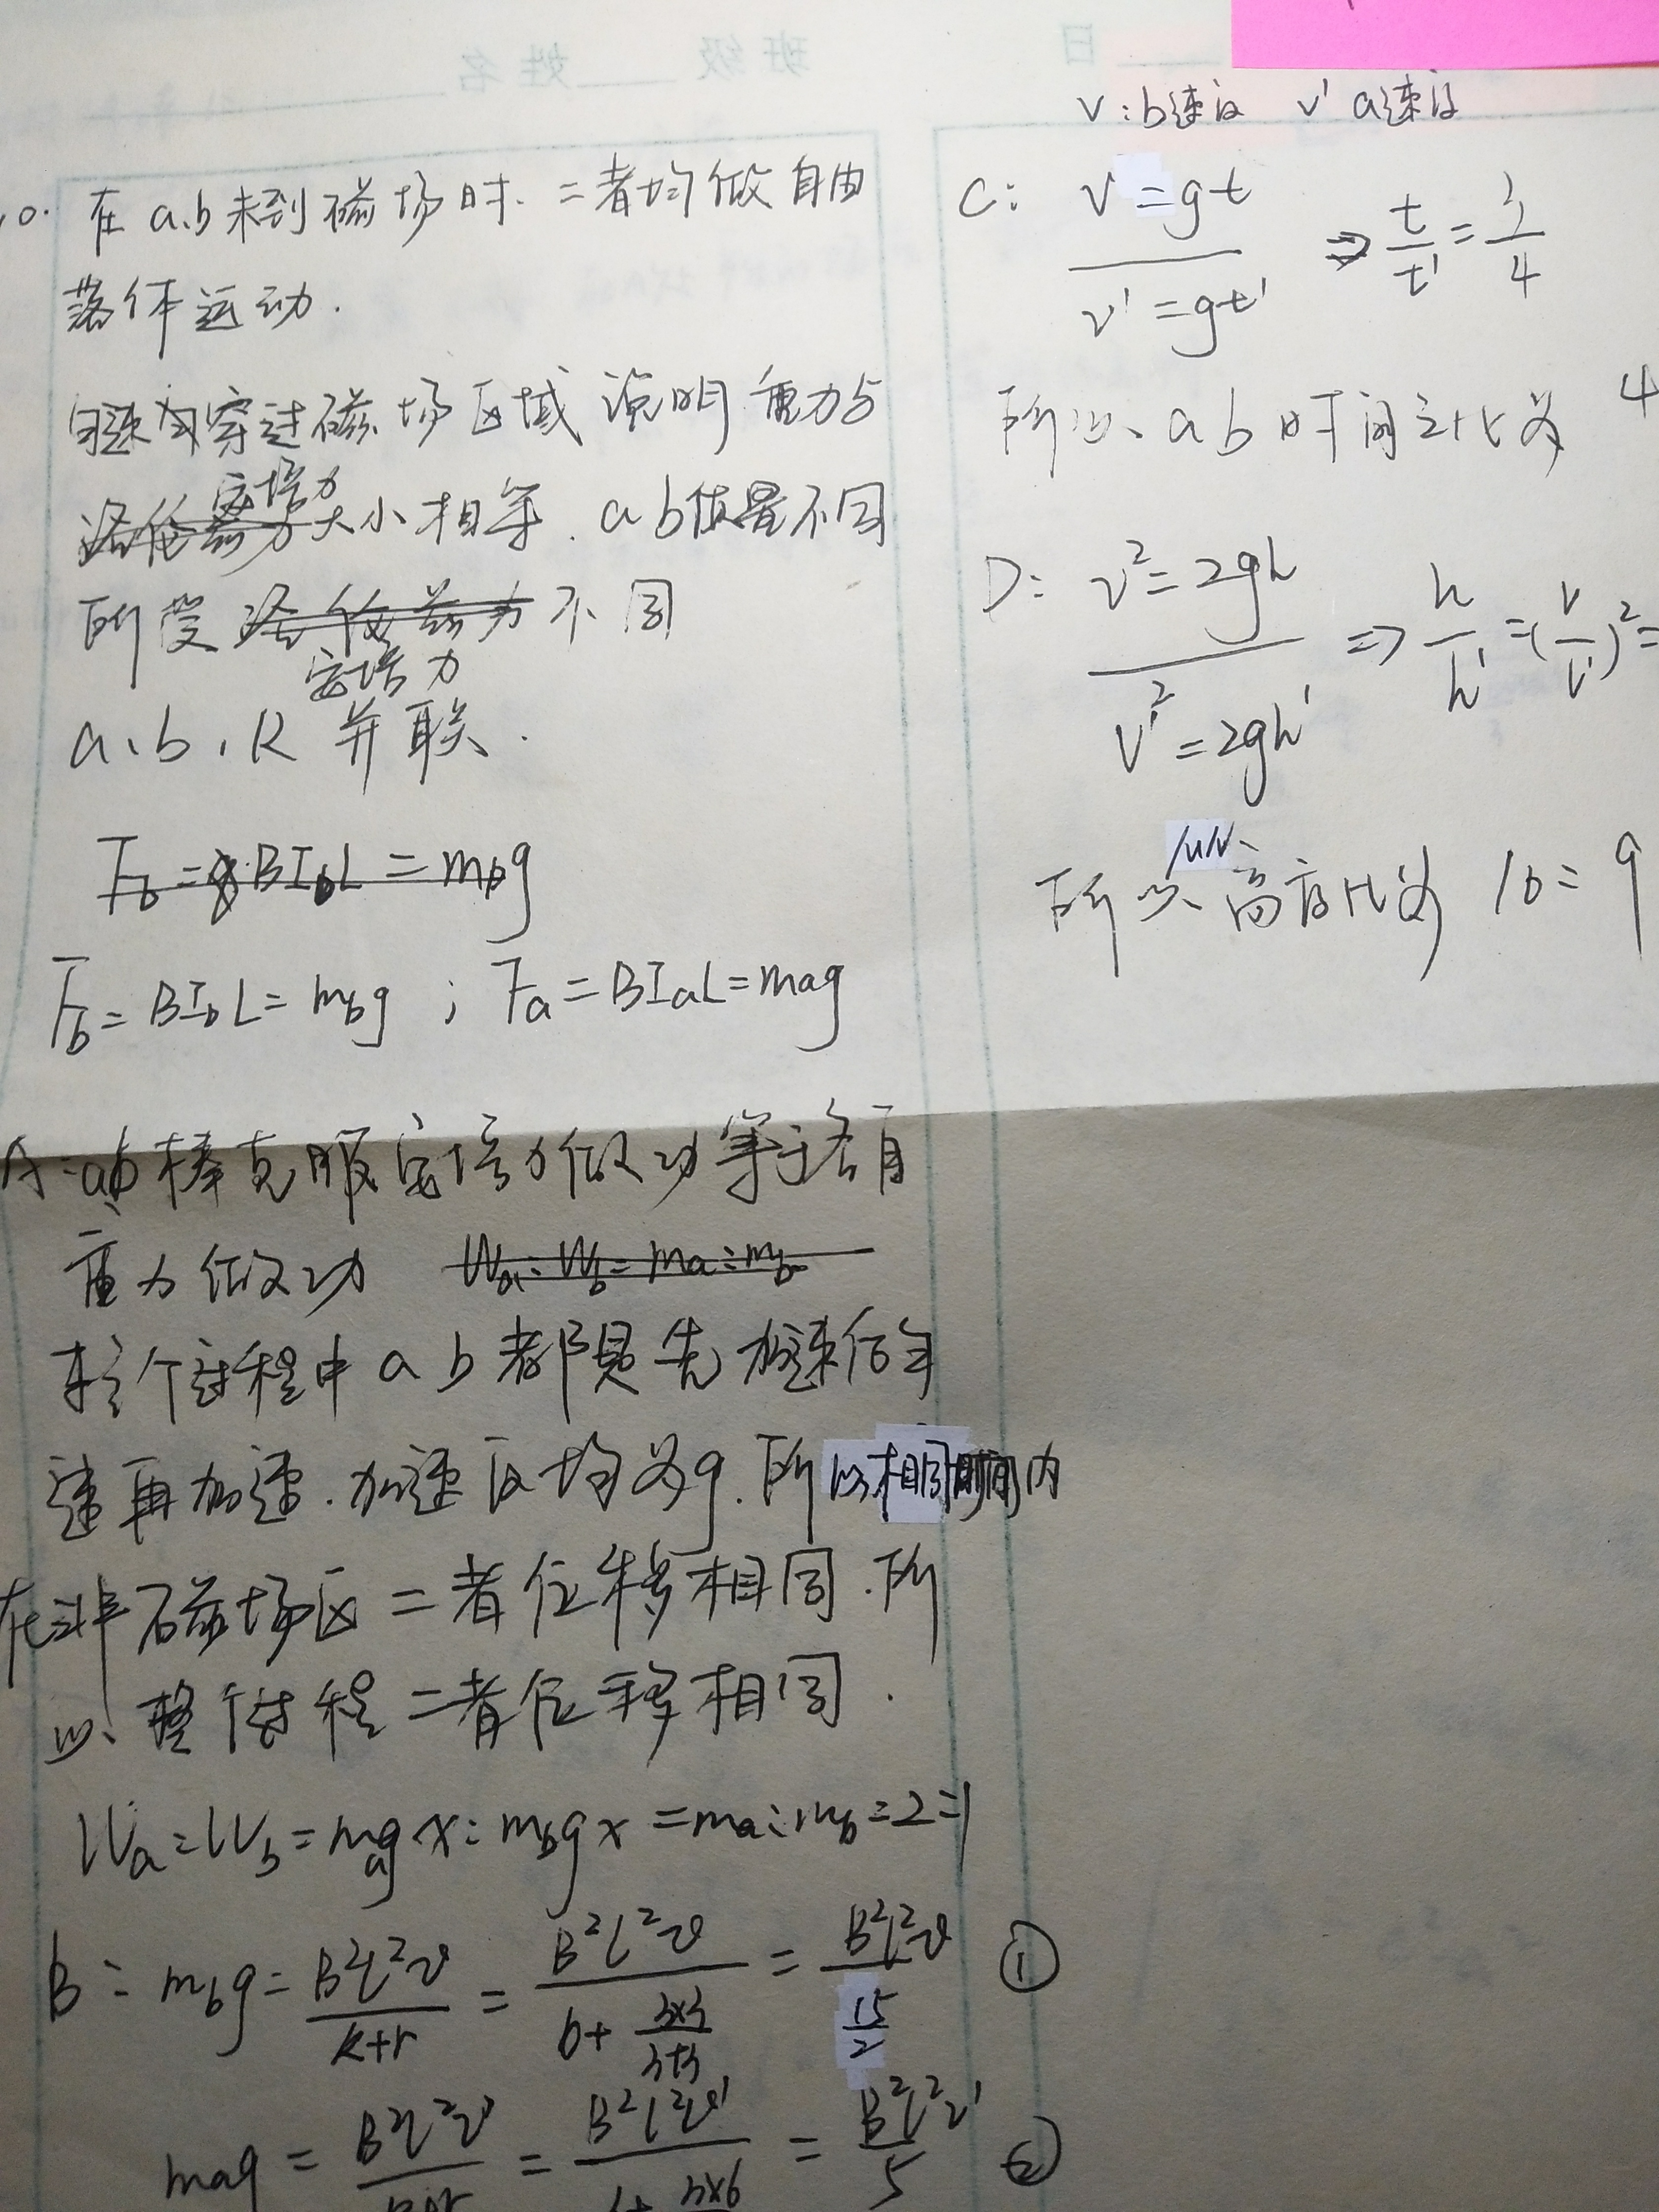 班级 姓名
日
10. 在a.b未到磁场时. 二者均做自由
落体运动.
匀速穿过磁场区域 说明重力与
安培力
大小相等. a b质量不同
所受 不同
安培力
a、b、R 并联.
F_b = BI_bL = m_bg
F_b = BI_bL = m_bg ; F_a = BI_aL = m_ag
A: ab棒克服安培力做功等于各自
重力做功 W_a:W_b = m_a:m_b
整个过程中 a b 都是先加速后匀
速再加速. 加速度均为g. 所以相同时间内
在非磁场区二者位移相同. 所
以整个过程二者位移相同.
W_a:W_b = m_agx:m_bgx = m_a:m_b = 2:1
B: m_bg = B²l²v/(R+r) = B²l²v/(6+(3×3)/(3+3)) = B²l²v/(15/2) ①
m_ag = B²l²v'/(R+r) = B²l²v' = B²l²v'/5 ②
3×6
v:b速度 v' a速度
C: v=gt / v'=gt' ⇒ t/t' = 3/4
所以 a b 时间之比为 4
D: v²=2gh / v'²=2gh' ⇒ h/h' = (v/v')² =
所以 高度比为 16:9